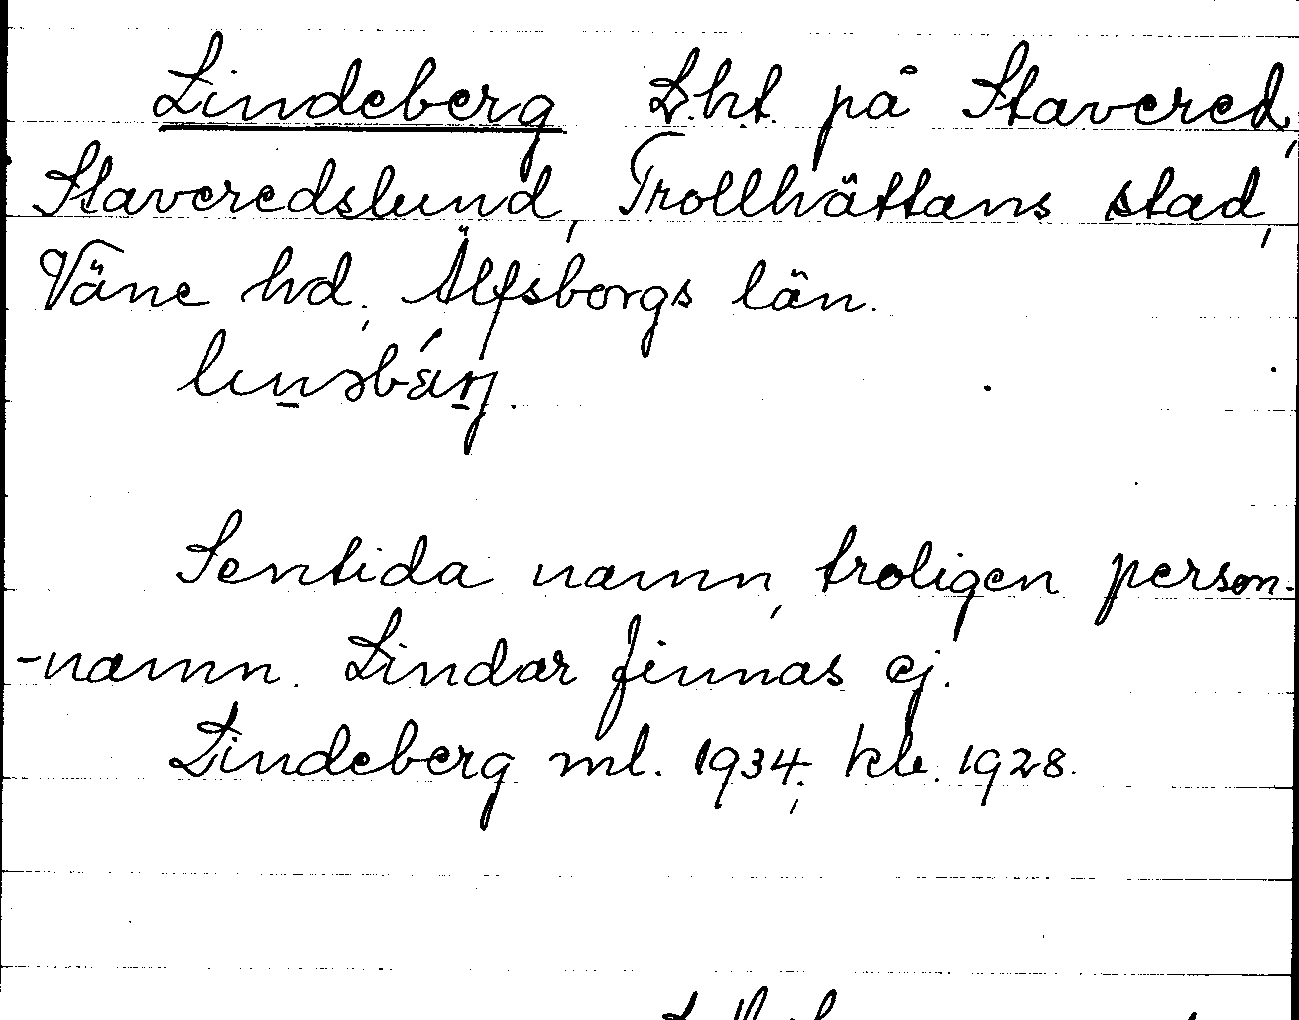 Lindeberg L.ht. på Stavered,
Staveredslund, Trollhättans stad,
Väne hd, Älfsborgs län.
Sentida namn, troligen person-
-namn. Lindar finnas ej.
Lindeberg ml. 1934; kle. 1928.